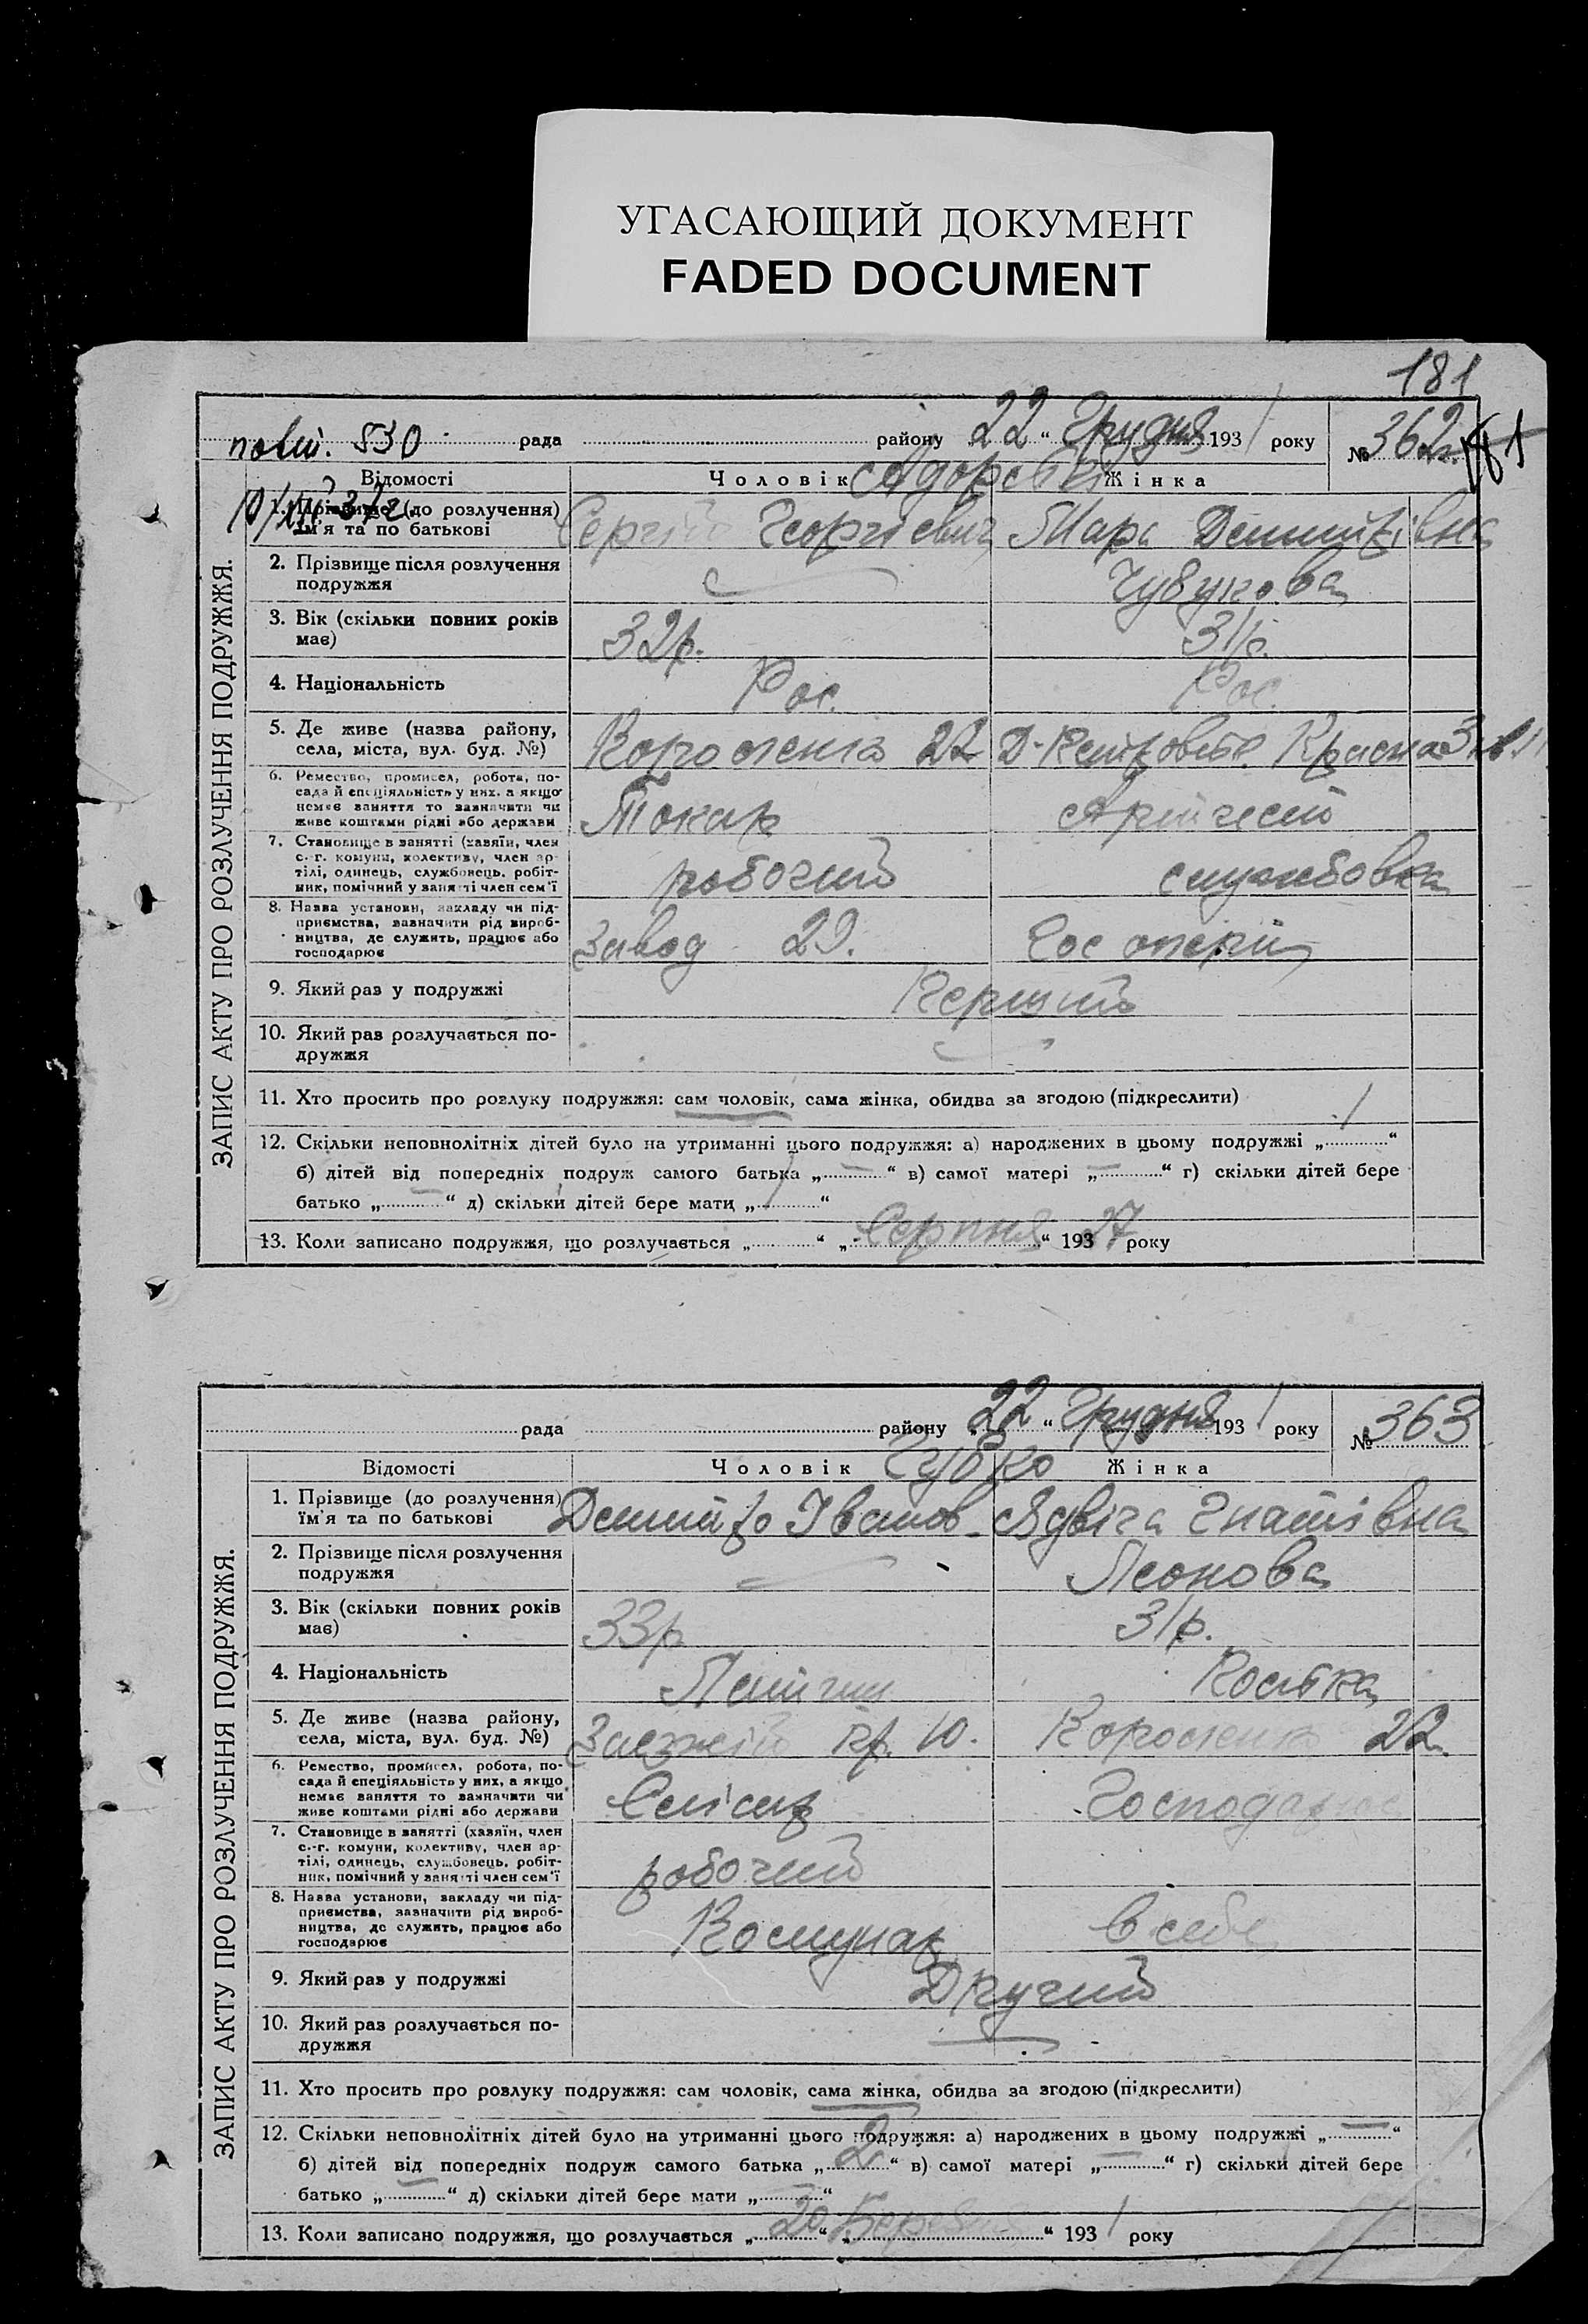 УГАСАЮЩИЙ ДОКУМЕНТ
FADED DOCUMENT
181
530 рада району 22 “ Грудня 1931 року № 362
Відомості Чоловік Жінка
ЗАПИС АКТУ ПРО РОЗЛУЧЕННЯ ПОДРУЖЖЯ.
1. Прізвище (до розлучення)
ім'я та по батькові Сергій Георгієвич Мара Дмитрівна
2. Прізвище після розлучення
подружжя Чубукова
3. Вік (скільки повних років
має) 32р. 31р.
4. Національність Рос. Рос.
5. Де живе (назва району,
села, міста, вул. буд. №) Короленка 22
6. Ремество, промисел, робота, по-
сада й спеціяльність у них, а якщо
немає заняття то зазначити чи
живе коштами рідні або держави Токар
7. Становище в занятті (хазяїн, член
с.-г. комуни, колективу, член ар-
тілі, одинець, службовець, робіт-
ник, помічний у занятті член сем'ї робочий службовка
8. Назва установи, закладу чи під-
приємства, зазначити рід вироб-
ництва, де служить, працює або
господарює Завод 29.
9. Який раз у подружжі Перший
10. Який раз розлучається по-
дружжя
11. Хто просить про розлуку подружжя: сам чоловік, сама жінка, обидва за згодою (підкреслити)
12. Скільки неповнолітніх дітей було на утриманні цього подружжя: а) народжених в цьому подружжі „ 1 “
б) дітей від попередніх подруж самого батька „ — “ в) самої матері „ — “ г) скільки дітей бере
батько „ — “ д) скільки дітей бере мати „ 1 “
13. Коли записано подружжя, що розлучається „ “ „ Серпня “ 193 27 року
рада району „ 22 “ Грудня 1931 року № 363
Відомості Чоловік Жінка
ЗАПИС АКТУ ПРО РОЗЛУЧЕННЯ ПОДРУЖЖЯ.
1. Прізвище (до розлучення)
ім'я та по батькові Дмитро Іванов. Ядвіга Гнатівна
2. Прізвище після розлучення
подружжя — Леонова
3. Вік (скільки повних років
має) 33р 31р.
4. Національність
5. Де живе (назва району,
села, міста, вул. буд. №) 10. Короленка 22.
6. Ремество, промисел, робота, по-
сада й спеціяльність у них, а якщо
немає заняття то зазначити чи
живе коштами рідні або держави Слісар
7. Становище в занятті (хазяїн, член
с.-г. комуни, колективу, член ар-
тілі, одинець, службовець, робіт-
ник, помічний у занятті член сем'ї робочий
8. Назва установи, закладу чи під-
приємства, зазначити рід вироб-
ництва, де служить, працює або
господарює Комунар в себе
9. Який раз у подружжі Другий
10. Який раз розлучається по-
дружжя —
11. Хто просить про розлуку подружжя: сам чоловік, сама жінка, обидва за згодою (підкреслити)
12. Скільки неповнолітніх дітей було на утриманні цього подружжя: а) народжених в цьому подружжі „ — “
б) дітей від попередніх подруж самого батька „ 2 “ в) самої матері „ — “ г) скільки дітей бере
батько „ — “ д) скільки дітей бере мати „ — “
13. Коли записано подружжя, що розлучається „ 20 “ „ “ 1931 року